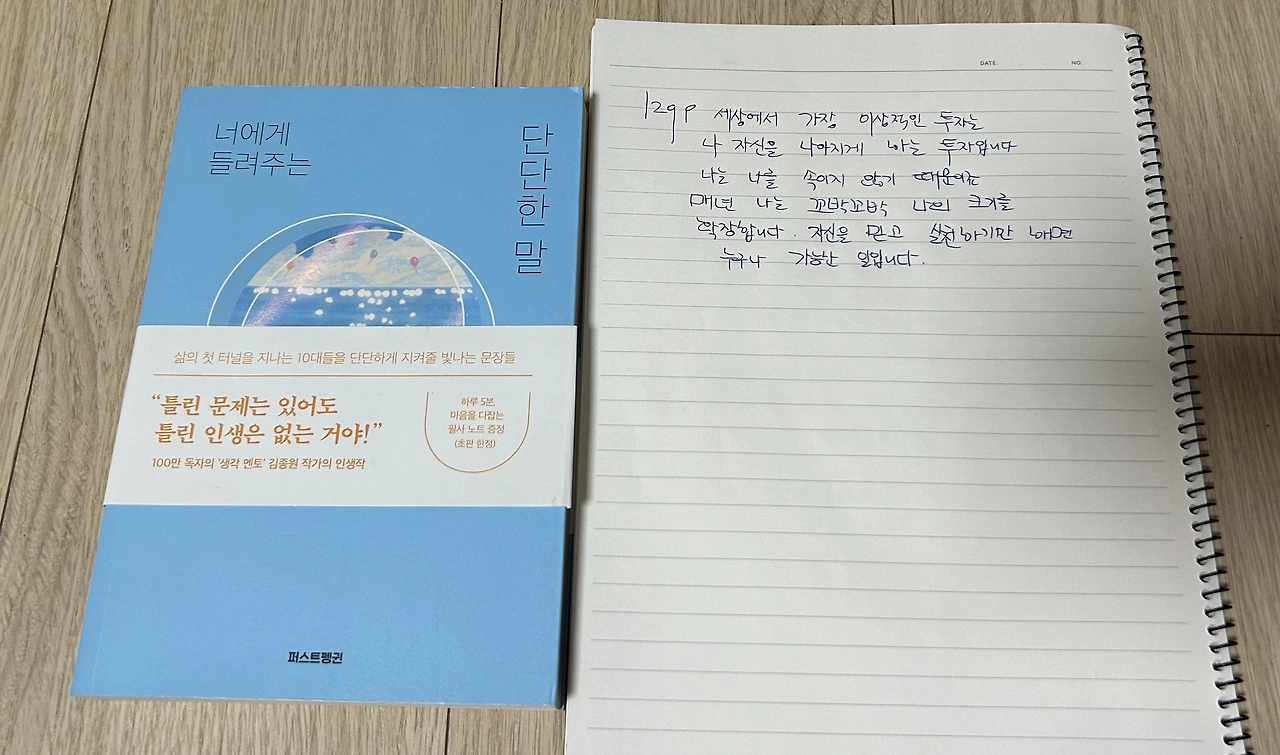 너에게
들려주는
단단한 말
삶의 첫 터널을 지나는 10대들을 단단하게 지켜줄 빛나는 문장들
“틀린 문제는 있어도
틀린 인생은 없는 거야!”
100만 독자의 ‘생각 멘토’ 김종원 작가의 인생작
하루 5분,
마음을 다잡는
필사 노트 증정
(초판 한정)
퍼스트펭귄
DATE. NO.
129p 세상에서 가장 이상적인 투자는
나 자신을 나아지게 하는 투자입니다
나는 나를 속이지 않기 때문이죠
매년 나는 꼬박꼬박 나의 크기를
확장합니다. 자신을 믿고 실천하기만 하면
누구나 가능한 일입니다.